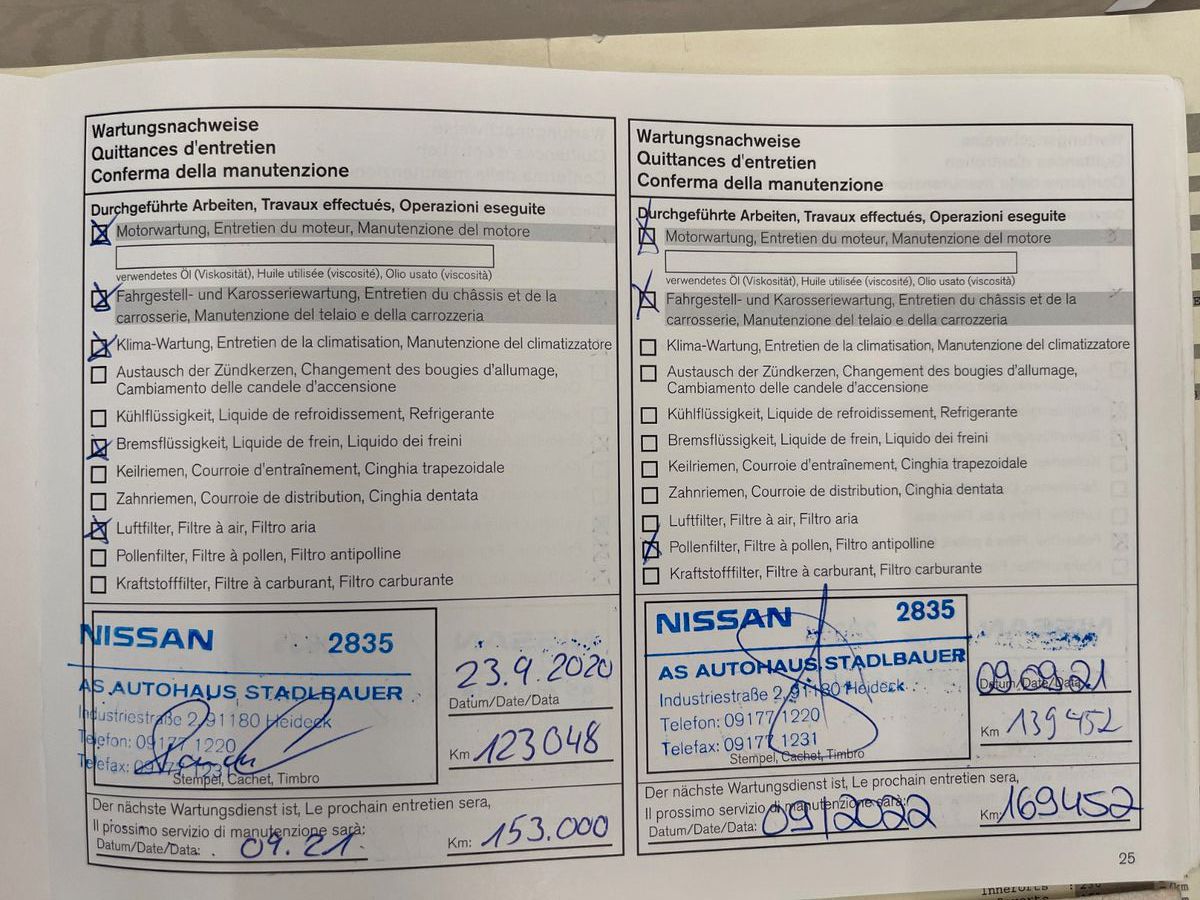 Wartungsnachweise
Quittances d'entretien
Conferma della manutenzione
Durchgeführte Arbeiten, Travaux effectués, Operazioni eseguite
Motorwartung, Entretien du moteur, Manutenzione del motore
verwendetes Öl (Viskosität), Huile utilisée (viscosité), Olio usato (viscosità)
Fahrgestell- und Karosseriewartung, Entretien du châssis et de la
carrosserie, Manutenzione del telaio e della carrozzeria
Klima-Wartung, Entretien de la climatisation, Manutenzione del climatizzatore
Austausch der Zündkerzen, Changement des bougies d'allumage,
Cambiamento delle candele d'accensione
Kühlflüssigkeit, Liquide de refroidissement, Refrigerante
Bremsflüssigkeit, Liquide de frein, Liquido dei freini
Keilriemen, Courroie d'entraînement, Cinghia trapezoidale
Zahnriemen, Courroie de distribution, Cinghia dentata
Luftfilter, Filtre à air, Filtro aria
Pollenfilter, Filtre à pollen, Filtro antipolline
Kraftstofffilter, Filtre à carburant, Filtro carburante
NISSAN 2835
AS AUTOHAUS STADLBAUER
Industriestraße 2, 91180 Heideck
Telefon: 09177 1220
Telefax:
Stempel, Cachet, Timbro
23.9.2020
Datum/Date/Data
Km 123048
Der nächste Wartungsdienst ist, Le prochain entretien sera,
Il prossimo servizio di manutenzione sarà:
Datum/Date/Data: 09.21.
Km: 153.000
Wartungsnachweise
Quittances d'entretien
Conferma della manutenzione
Durchgeführte Arbeiten, Travaux effectués, Operazioni eseguite
Motorwartung, Entretien du moteur, Manutenzione del motore
verwendetes Öl (Viskosität), Huile utilisée (viscosité), Olio usato (viscosità)
Fahrgestell- und Karosseriewartung, Entretien du châssis et de la
carrosserie, Manutenzione del telaio e della carrozzeria
Klima-Wartung, Entretien de la climatisation, Manutenzione del climatizzatore
Austausch der Zündkerzen, Changement des bougies d'allumage,
Cambiamento delle candele d'accensione
Kühlflüssigkeit, Liquide de refroidissement, Refrigerante
Bremsflüssigkeit, Liquide de frein, Liquido dei freini
Keilriemen, Courroie d'entraînement, Cinghia trapezoidale
Zahnriemen, Courroie de distribution, Cinghia dentata
Luftfilter, Filtre à air, Filtro aria
Pollenfilter, Filtre à pollen, Filtro antipolline
Kraftstofffilter, Filtre à carburant, Filtro carburante
NISSAN 2835
AS AUTOHAUS STADLBAUER
Industriestraße 2, 91180 Heideck
Telefon: 09177 1220
Telefax: 09177 1231
Stempel, Cachet, Timbro
09.09.21
Datum/Date/Data
Km 139452
Der nächste Wartungsdienst ist, Le prochain entretien sera,
Il prossimo servizio di manutenzione sarà:
Datum/Date/Data: 09/2022
Km: 169452
25